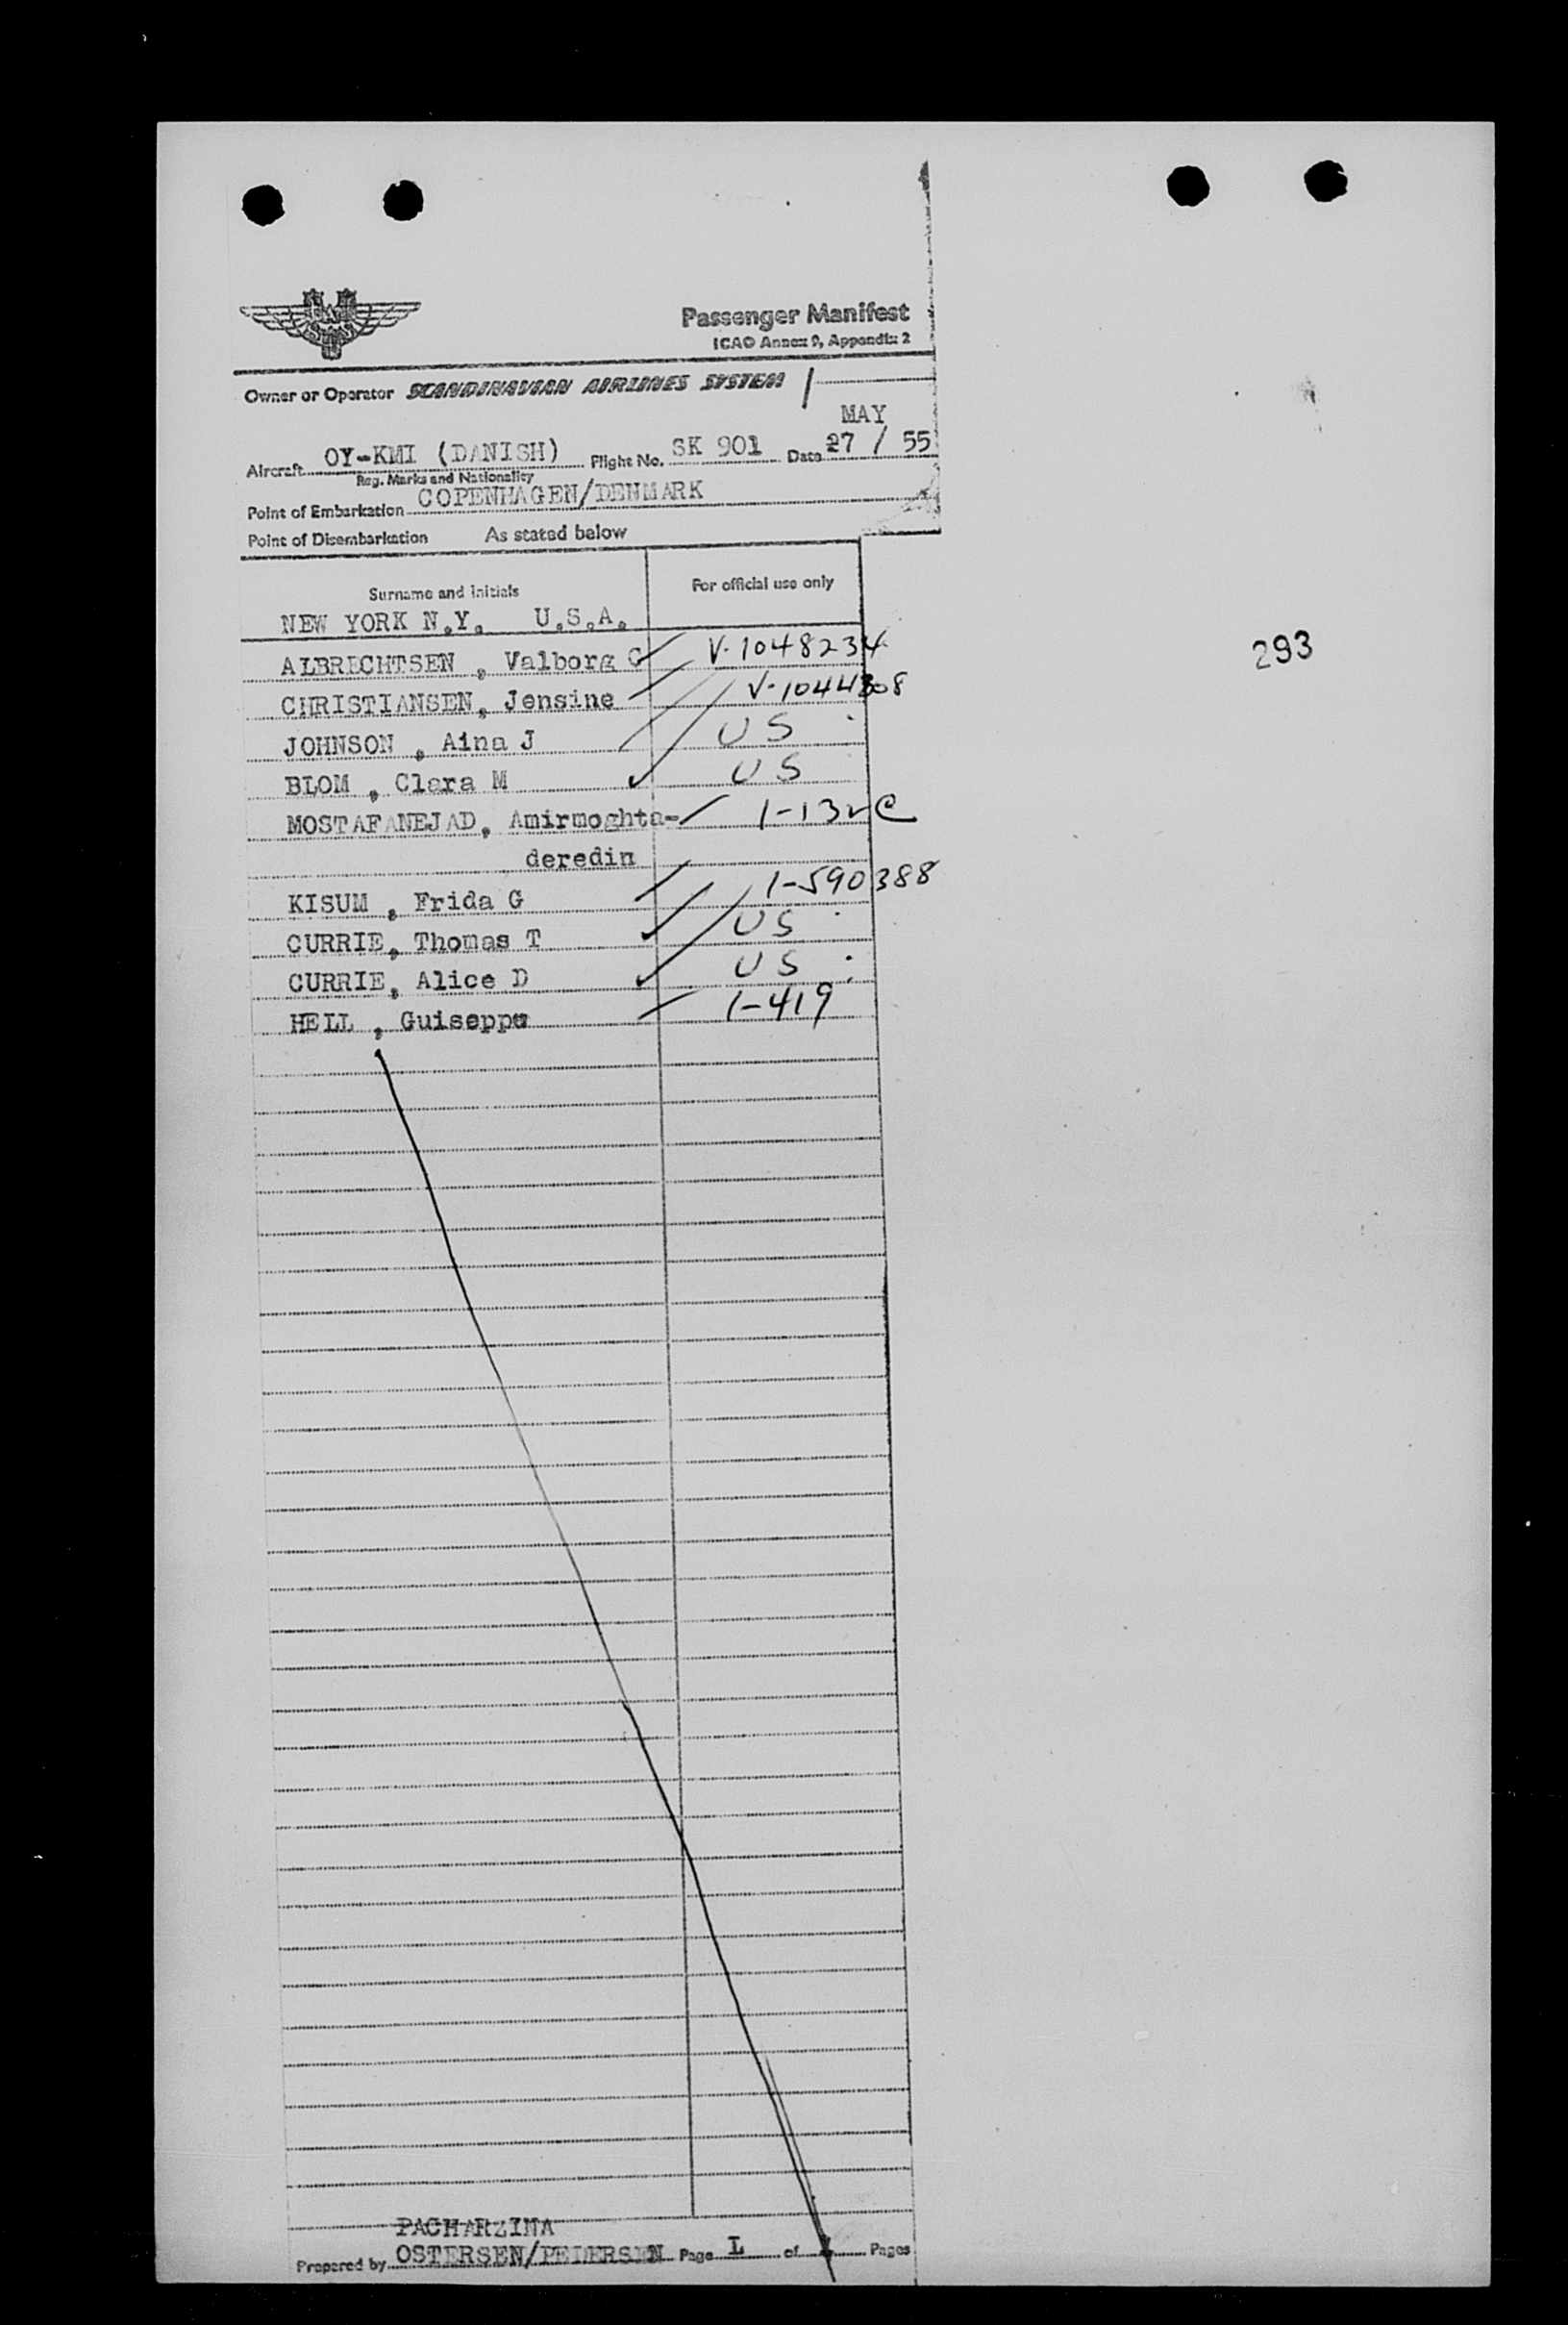 SAS
Passenger Manifest
ICAO Annex 9, Appendix 2
Owner or Operator SCANDINAVIAN AIRLINES SYSTEM
MAY
Aircraft OY-KMI (DANISH) Flight No. SK 901 Date 27 / 55
Reg. Marks and Nationality
Point of Embarkation COPENHAGEN/DENMARK
Point of Disembarkation As stated below
Surname and initials For official use only
NEW YORK N.Y. U.S.A.
ALBRECHTSEN , Valborg C V-1048234
CHRISTIANSEN, Jensine V-1044308
JOHNSON , Aina J US
BLOM , Clara M US
MOSTAFANEJAD, Amirmoghta-
deredin
KISUM , Frida G 1-590388
CURRIE, Thomas T US
CURRIE, Alice D US
HELL , Guiseppe 1-419
293
PACHARZINA
Prepared by OSTERSEN/PEDERSEN Page L of Pages